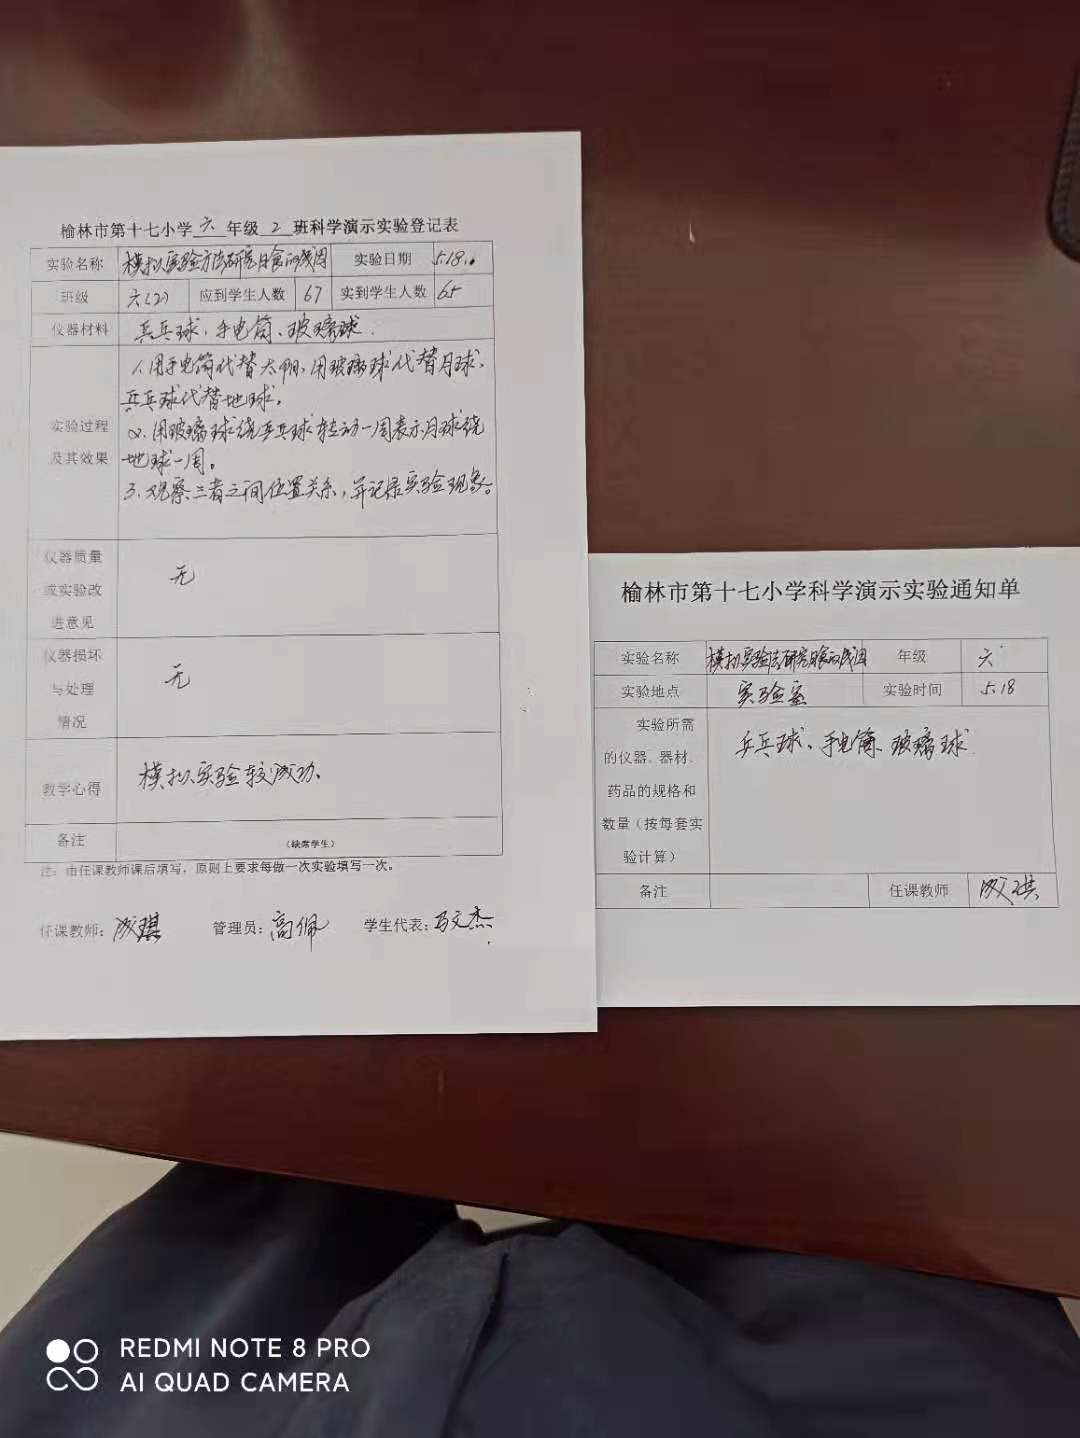 榆林市第十七小学 六 年级 2 班科学演示实验登记表
实验名称 模拟实验方法研究日食的成因 实验日期 5.18.
班级 六(2) 应到学生人数 67 实到学生人数 65
仪器材料 乒乓球、手电筒、玻璃球.
实验过程
及其效果
1.用手电筒代替太阳,用玻璃球代替月球,
乒乓球代替地球。
2.用玻璃球绕乒乓球转动一周表示月球绕
地球一周。
3.观察三者之间位置关系,并记录实验现象。
仪器质量
或实验改
进意见
无
仪器损坏
与处理
情况
无
教学心得 模拟实验较成功、
备注 (缺席学生)
注:由任课教师课后填写,原则上要求每做一次实验填写一次。
任课教师: 成琪 管理员: 高佩 学生代表: 马文杰
榆林市第十七小学科学演示实验通知单
实验名称 模拟实验法研究日食的成因 年级 六
实验地点 实验室 实验时间 5.18
实验所需
的仪器、器材、
药品的规格和
数量(按每套实
验计算)
乒乓球、手电筒、玻璃球.
备注 任课教师 成琪
REDMI NOTE 8 PRO
AI QUAD CAMERA